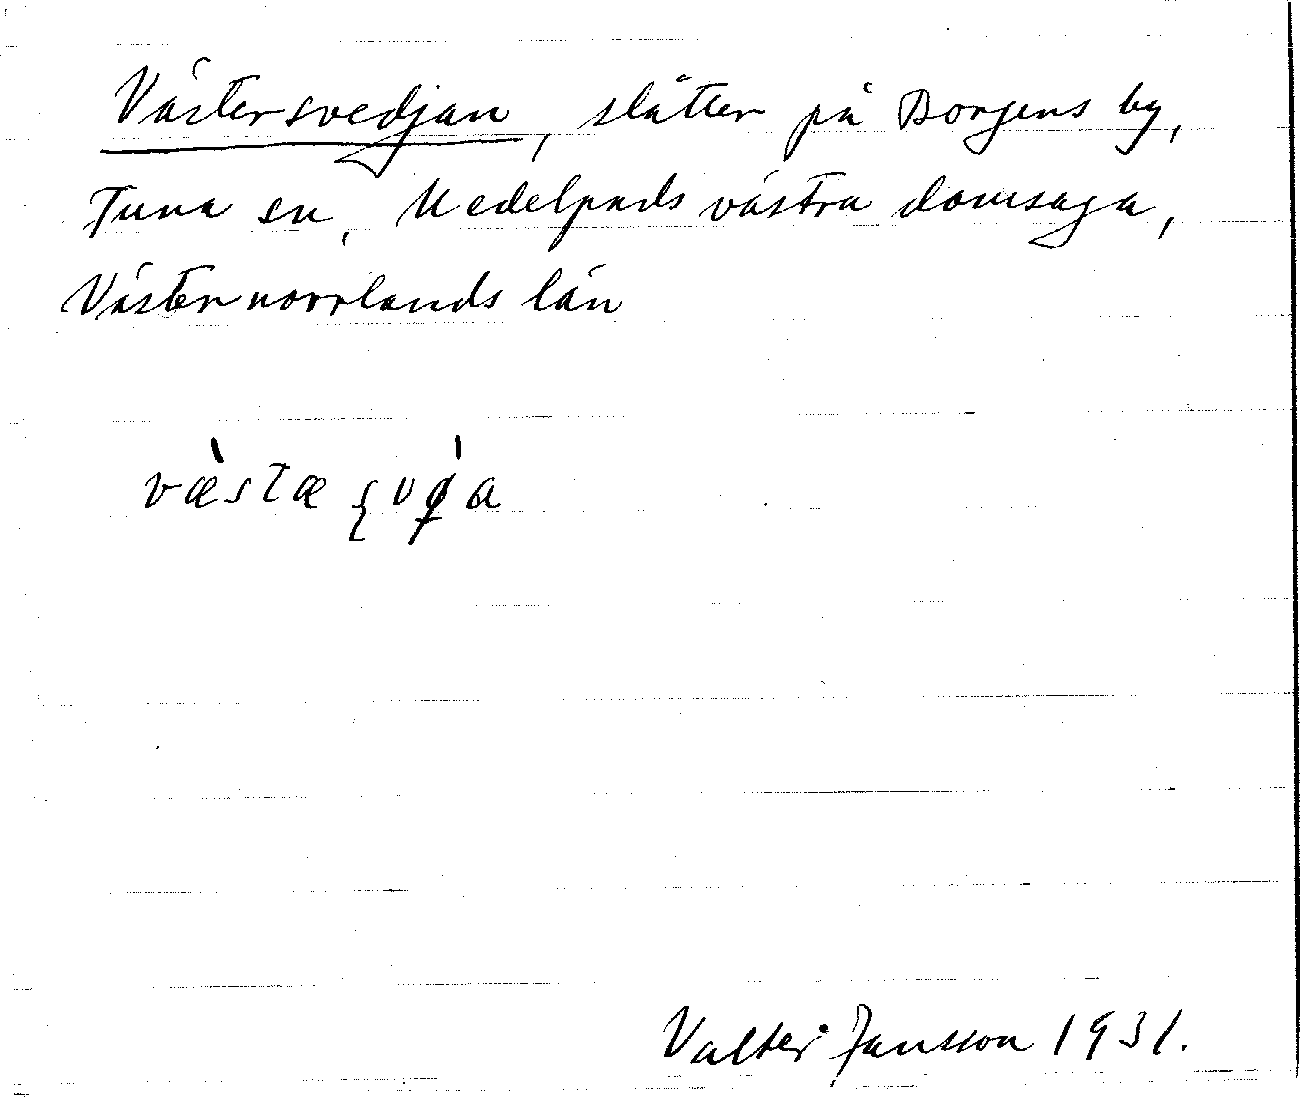 Västersvedjan, slåtter på Borgens by,
Tuna sn, Medelpads västra domsaga,
Västernorrlands län
Valter Jansson 1931.